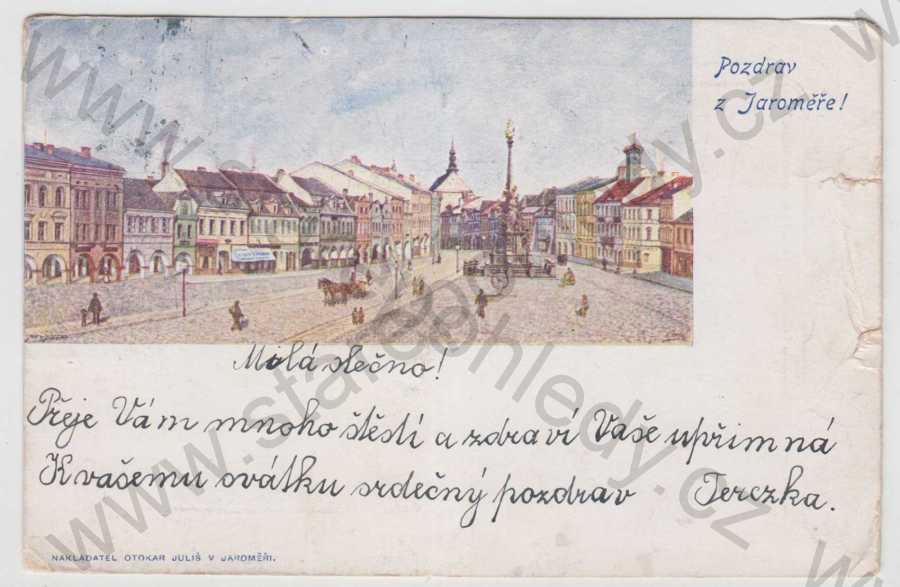 Pozdrav
z Jaroměře!
Milá slečno!
Přeje Vám mnoho štěstí a zdraví Vaše upřimná
K vašemu svátku srdečný pozdrav Terezka.
NAKLADATEL OTOKAR JULIŠ V JAROMĚŘI.
www.starepohledy.cz